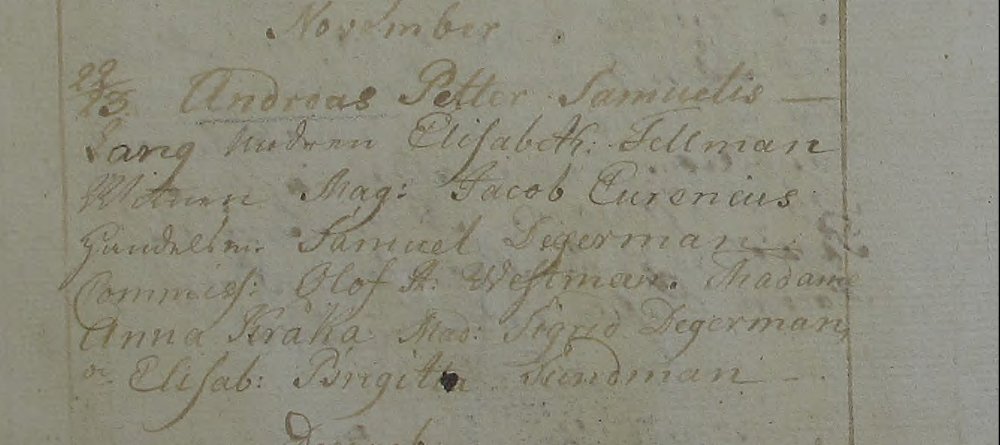 November
22/13. Andreas Petter Samuelis —
Lang Modren Elisabeth: Fellman
Witnen Mag: Jacob Eurenius
Handelsm: Samuel Degerman
Commiss: Olof A: Westman. Madame
Anna Kråka Mad: Sigrid Degerman,
oc Elisab: Brigitta Sundman —